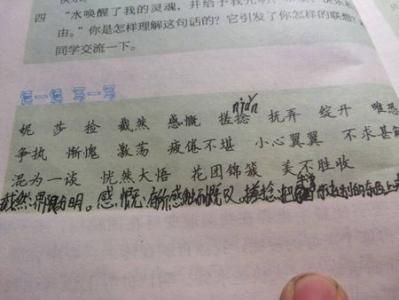 四 “水唤醒了我的灵魂，并给予我光明、
由。”你是怎样理解这句话的？它引发了你怎样的联想？
同学交流一下。
读一读 写一写
niǎn
妮 莎 捡 截然 感慨 搓捻 抚弄 绽开 唯恐
争执 惭愧 激荡 疲倦不堪 小心翼翼 不求甚
混为一谈 恍然大悟 花团锦簇 美不胜收
截然:界限分明。感慨:有所感触而慨叹。搓捻:把